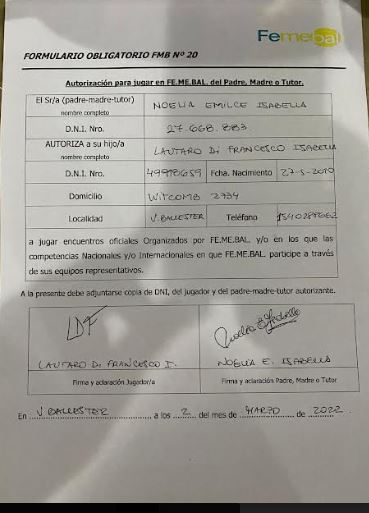 Femebal
FORMULARIO OBLIGATORIO FMB Nº 20
Autorización para jugar en FE.ME.BAL. del Padre, Madre o Tutor.
El Sr/a (padre-madre-tutor)
nombre completo
NOELIA EMILCE ISABELLA
D.N.I. Nro.
27 668.883
AUTORIZA a su hijo/a
nombre completo
LAUTARO DI FRANCESCO ISABELLA
D.N.I. Nro. 49998659 Fcha. Nacimiento 27-5-2010
Domicilio WITCOMB 2734
Localidad V. BALLESTER Teléfono
a jugar encuentros oficiales Organizados por FE.ME.BAL. y/o en los que las
competencias Nacionales y/o Internacionales en que FE.ME.BAL. participe a través
de sus equipos representativos.
A la presente debe adjuntarse copia de DNI, del jugador y del padre-madre-tutor autorizante.
LDF
LAUTARO DI FRANCESCO I. NOELIA E. ISABELLA
Firma y aclaración Jugador/a Firma y aclaración Padre, Madre o Tutor
En V. BALLESTER a los 2 del mes de MARZO de 2022.